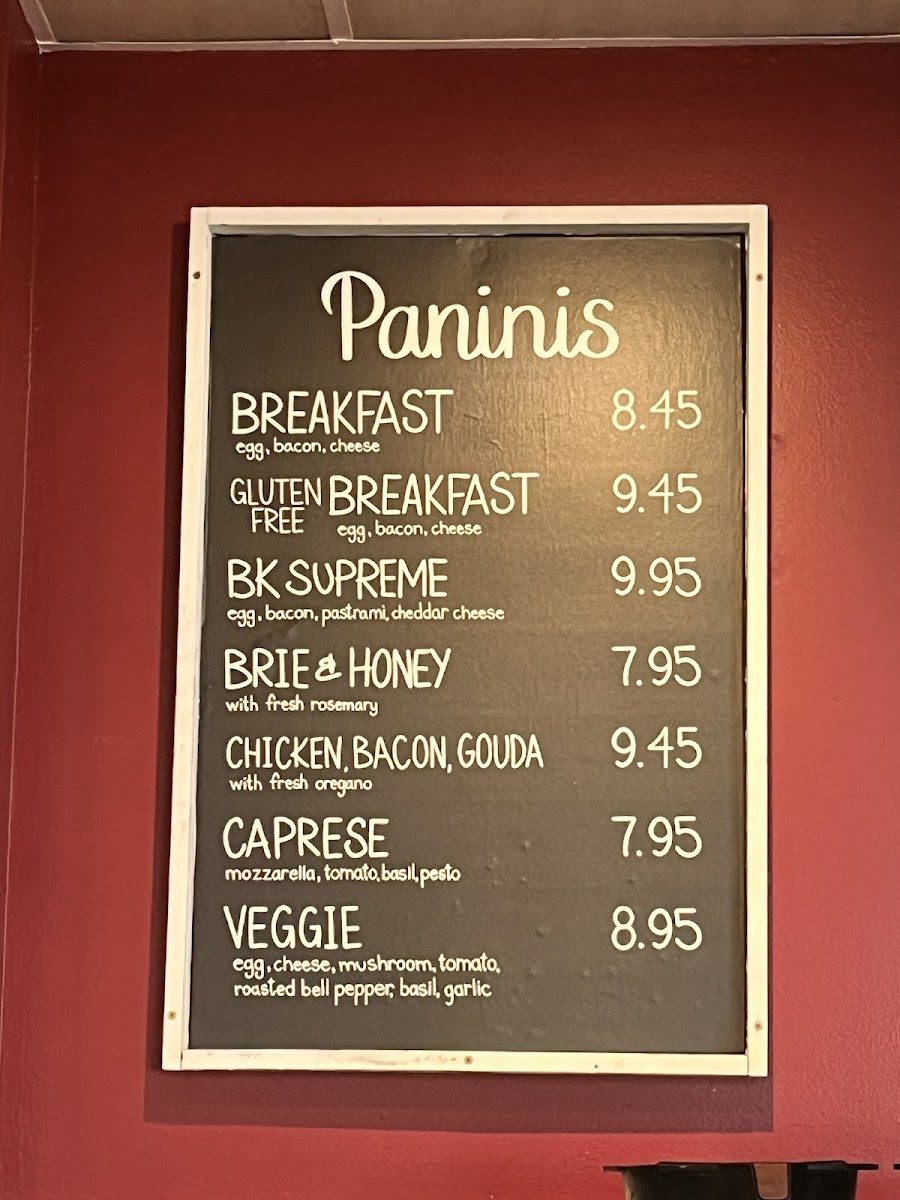 Paninis
BREAKFAST 8.45
egg, bacon, cheese
GLUTEN FREE BREAKFAST 9.45
egg, bacon, cheese
BK SUPREME 9.95
egg, bacon, pastrami, cheddar cheese
BRIE & HONEY 7.95
with fresh rosemary
CHICKEN, BACON, GOUDA 9.45
with fresh oregano
CAPRESE 7.95
mozzarella, tomato, basil, pesto
VEGGIE 8.95
egg, cheese, mushroom, tomato,
roasted bell pepper, basil, garlic